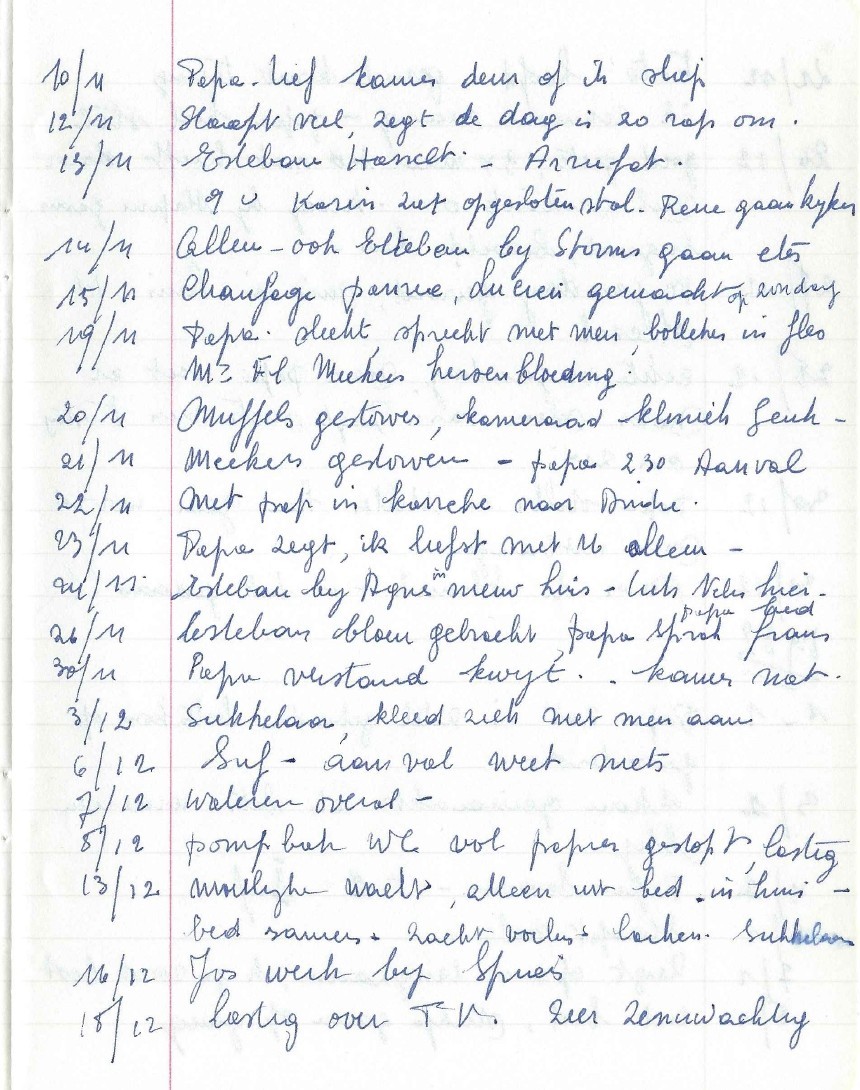 10/11 Papa lief kamer deur of ik sliep
12/11 Slaapt veel, zegt de dag is zo rap om.
13/11 Esteban Hasselt. - Arrufat.
9 u Karin zit opgesloten stal. Rene gaan kyken
14/11 Allen - ook Esteban by Storms gaan eten
15/11 Chaufage panne, Lucien gemaakt op zondag
19/11 Papa. slecht spreekt met men, bolleken in fles
Meekers hersenbloeding.
20/11 Muffels gestorven, kameraad kliniek Genk -
21/11 Meekers gestorven - papa 230 Aanval
22/11 Met pap in karreke naar
23/11 Papa zegt, ik liefst met U alleen -
24/11 Esteban by Agnes in nieuw huis - Luk hier.
papa bed
26/11 Esteban bloem gebracht, papa sprak frans
30/11 Papa verstand kwyt. - kamer nat.
3/12 Sukkelaar, kleed zich met men aan
6/12 Suf - aanval weet niets
7/12 Wateren overal -
8/12 pomp bak WC vol papier gestopt, lastig
13/12 moeilyke nacht, alleen uit bed. in huis -
bed samen. zacht lachen. Sukkelaar
16/12 Jos werk by
18/12 lastig over T.V. zeer zenuwachtig